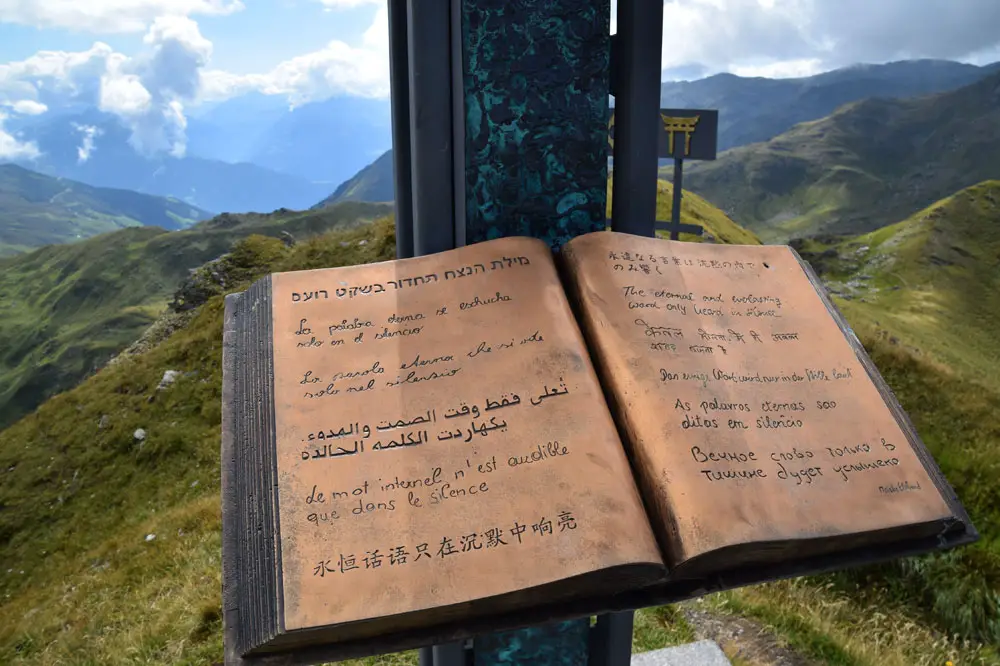 מילת הנצח תחדור בשקט רועם
La palabra eterna se eschucha
solo en el silencio
La parola eterna che si ode
solo nel silenzio
تُعلى فقط وقت الصمت والهدوء.
الكلمه الخالده
de mot internel n'est audible
que dans le silence
永恒话语只在沉默中响亮
永遠なる言葉は沈黙の内で
のみ響く
The eternal and everlasting
word only heard in silence
केवल
Das ewige Wort wird nur in der Stille laut
As palavros eternas sao
ditas em silencio
Вечное слово только в
тишине будет услышено